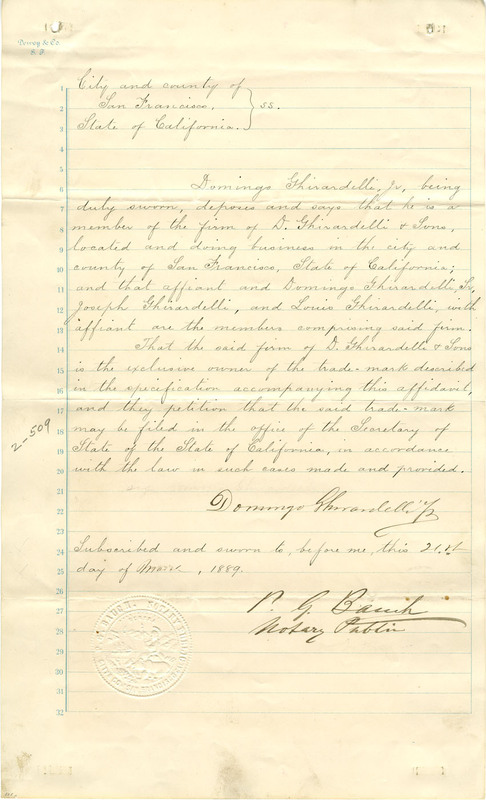 Dewey & Co.
S. F.
1 City and county of
2 San Francisco, } ss.
3 State of California.
4
5
6 Domingo Ghirardelli, Jr., being
7 duly sworn, deposes and says that he is a
8 member of the firm of D. Ghirardelli & Sons,
9 located and doing business in the city and
10 county of San Francisco, State of California;
11 and that affiant and Domingo Ghirardelli, Sr.,
12 Joseph Ghirardelli, and Louis Ghirardelli, with
13 affiant are the members comprising said firm.
14 That the said firm of D. Ghirardelli & Sons
15 is the exclusive owner of the trade-mark described
16 in the specification accompanying this affidavit,
17 and they petition that the said trade-mark
18 may be filed in the office of the Secretary of
19 State of the State of California, in accordance
20 with the law in such cases made and provided.
2-509
21
22 Domingo Ghirardelli Jr
23
24 Subscribed and sworn to, before me, this 21st
25 day of March, 1889.
26
27 Bauch
28 Notary Public
29
30
31
32